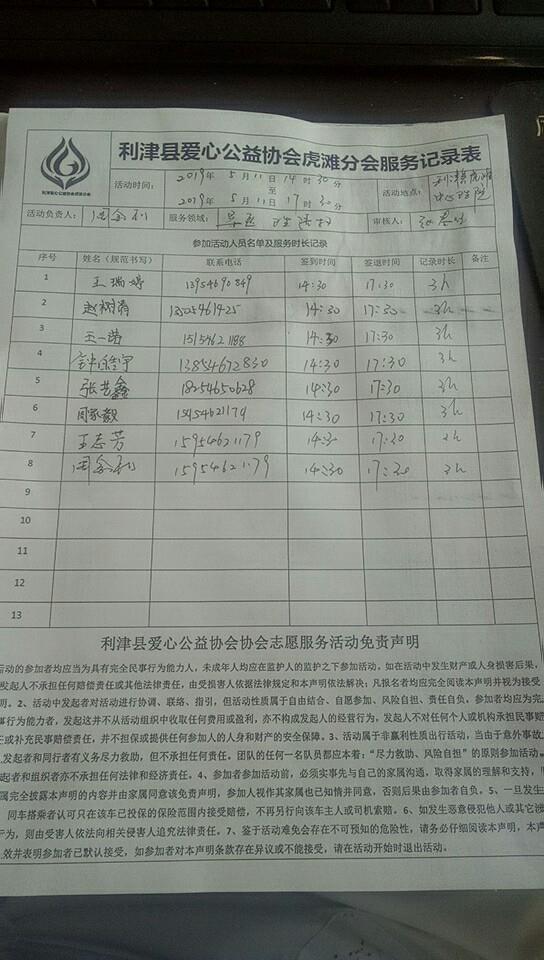 利津县爱心公益协会虎滩分会服务记录表
利津县爱心公益协会虎滩分会
活动时间： 2019年 5月11日14时30分
至
2019年 5月11日17时30分
活动地点： 利津虎滩
中心
活动负责人： 服务领域： 审核人：
参加活动人员名单及服务时长记录
序号 姓名（规范书写） 联系电话 签到时间 签退时间 记录时长 备注
1 王瑞婷 13954690849 14:30 17:30 3h
2 赵树青 13505461425 14:30 17:30 3h
3 王一诺 15154621188 14:30 17:30 3h
4 13854672830 14:30 17:30 3h
5 张艺鑫 18254650628 14:30 17:30 3h
6 周家毅 14:30 17:30 3h
7 王志芳 15954621179 14:30 17:30 3h
8 15954621179 14:30 17:30 3h
9
10
11
12
13
利津县爱心公益协会协会志愿服务活动免责声明
活动的参加者均应当为具有完全民事行为能力人，未成年人均应在监护人的监护之下参加活动，如在活动中发生财产或人身损害后果，
发起人不承担任何赔偿责任或其他法律责任，由受损害人依据法律规定和本声明依法解决；凡报名者均应完全阅读本声明并视为接受
明。2、活动中发起者对活动进行协调、联络、指引，但活动性质属于自由结合、自愿参加、风险自担、责任自负。参加者均应为完
事行为能力者，发起这并不从活动组织中收取任何费用或盈利，亦不构成发起人的经营行为，发起人不对任何个人或机构承担民事赔
任或补充民事赔偿责任，并不担保或提供任何参加人的人身和财产的安全保障。3、活动属于非赢利性质出行活动，当由于意外事故
发起者和同行者有义务尽力救助，但不承担任何责任。团队的任何一名队员都应本着：“尽力救助、风险自担”的原则参加活动。
起者和组织者亦不承担任何法律和经济责任。4、参加者参加活动前，必须实事先与自己的家属沟通，取得家属的理解和支持，
属完全披露本声明的内容并由家属同意该免责声明，参加人视作其家属也已知情并同意，否则后果由参加者自负。5、一旦发生
同车搭乘者认可只在该车已投保的保险范围内接受赔偿，不再另行向该车主人或司机索赔。6、如发生恶意侵犯他人或其它涉
为，则由受害人依法向相关侵害人追究法律责任。7、鉴于活动难免会存在不可预知的危险性，请务必仔细阅读本声明，本声
效并表明参加者已默认接受，如参加者对本声明条款存在异议或不能接受，请在活动开始时退出活动。